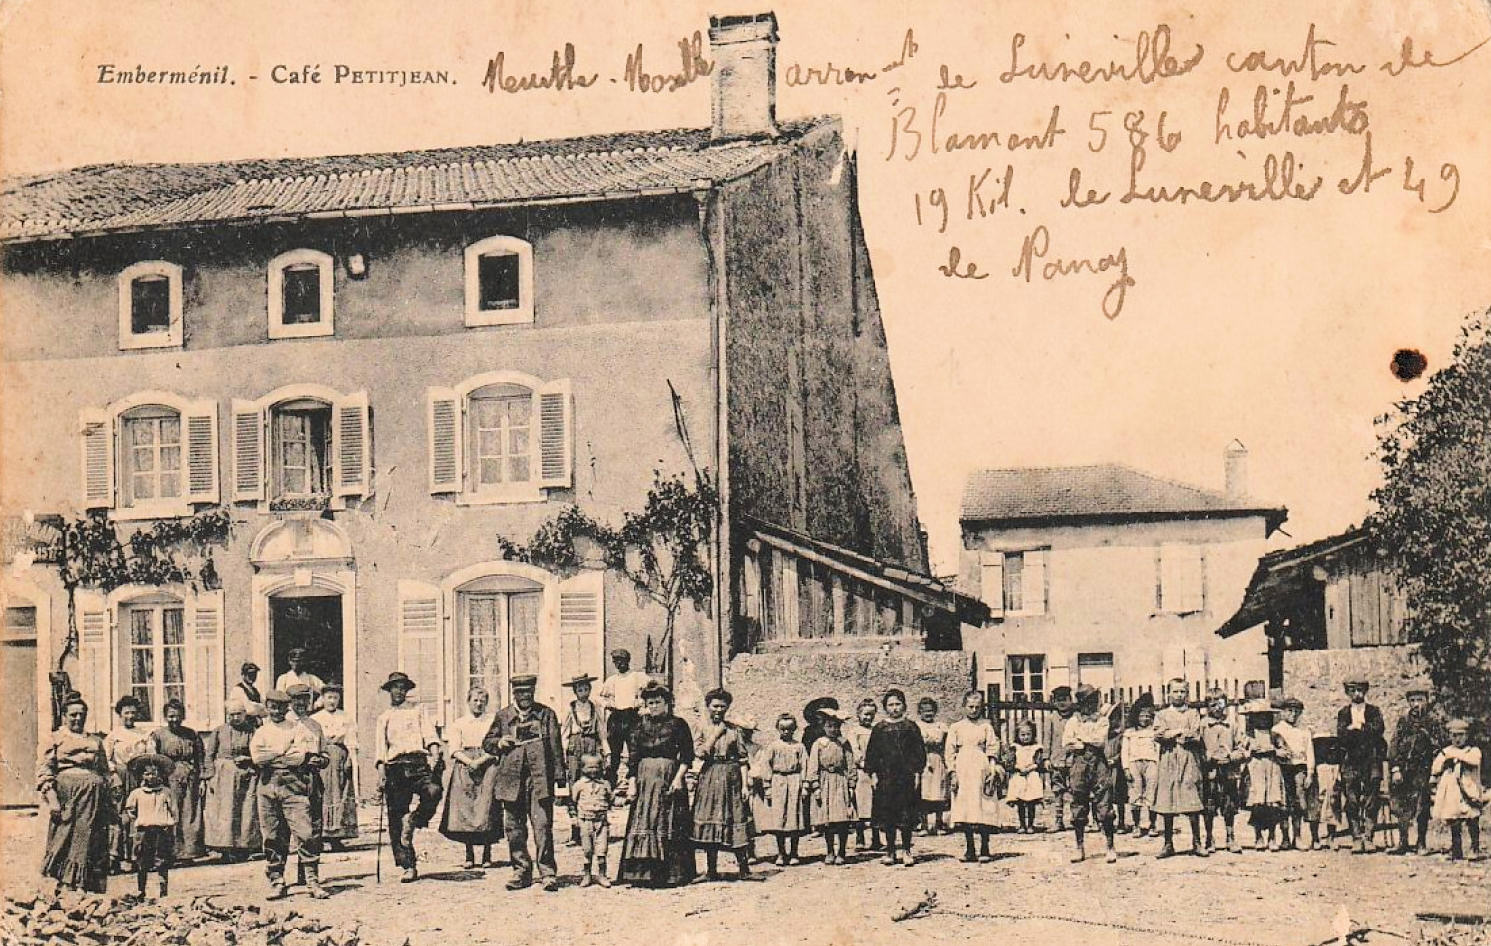 Emberménil. - Café PETITJEAN. Meurthe - Moselle arron-t de Luneville canton de
Blamont 586 habitants
19 Kil. de Luneville et 49
de Nancy